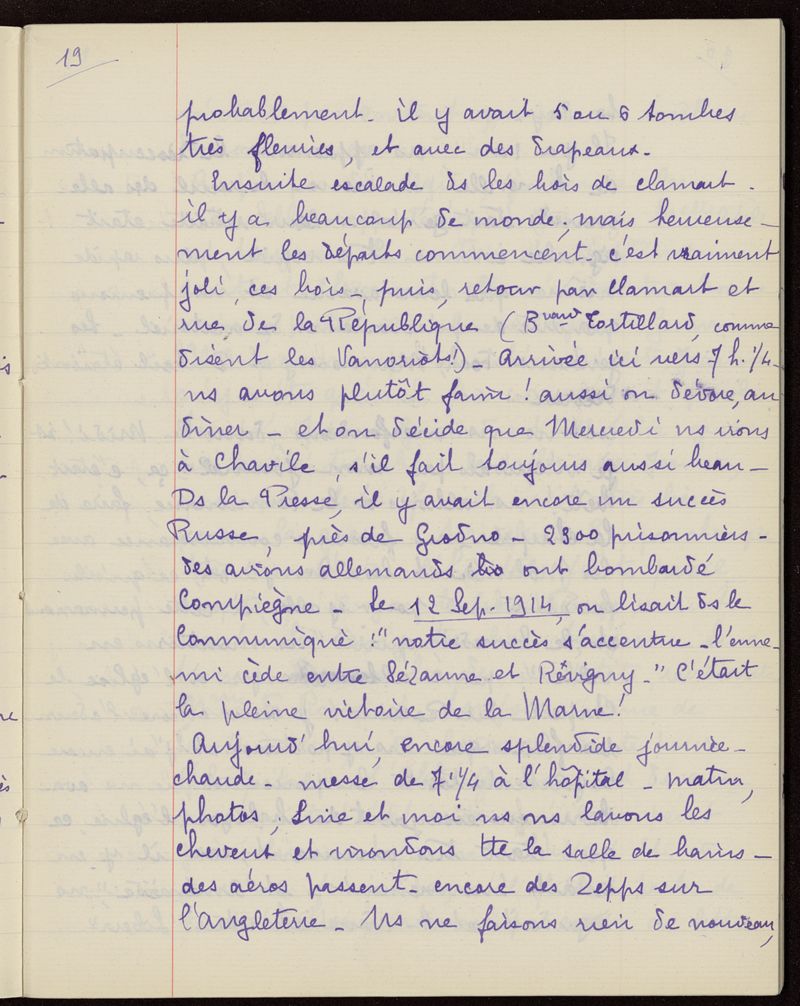 19
probablement. il y avait 5 ou 6 tombes
très fleuries, et avec des drapeaux.
Ensuite escalade ds les bois de clamart.
il y a beaucoup de monde, mais heureuse-
ment les départs commencent. c'est vraiment
joli, ces bois - puis, retour par Clamart et
rue de la République (Bvard Tortillard, comme
disent les Vanoriots!) - Arrivée ici vers 7 h. 1/4
ns avons plutôt faim ! aussi on dévore, au
dîner - et on décide que Mercredi ns irons
à Chaville, s'il fait toujours aussi beau -
Ds la Presse, il y avait encore un succès
Russe, près de Grodno - 2300 prisonniers -
des avions allemands bo ont bombardé
Compiègne - Le 12 Sep. 1914, on lisait ds le
Communiqué : "notre succès s'accentue - l'enne-
mi cède entre Sézanne et Révigny -" C'était
la pleine victoire de la Marne !
Aujourd'hui, encore splendide journée -
chaude - messe de 7h 1/4 à l'hôpital - matin,
photos, Line et moi ns ns lavons les
cheveux et inondons tte la salle de bains -
des aéros passent - encore des Zepps sur
l'Angleterre - Ns ne faisons rien de nouveau,